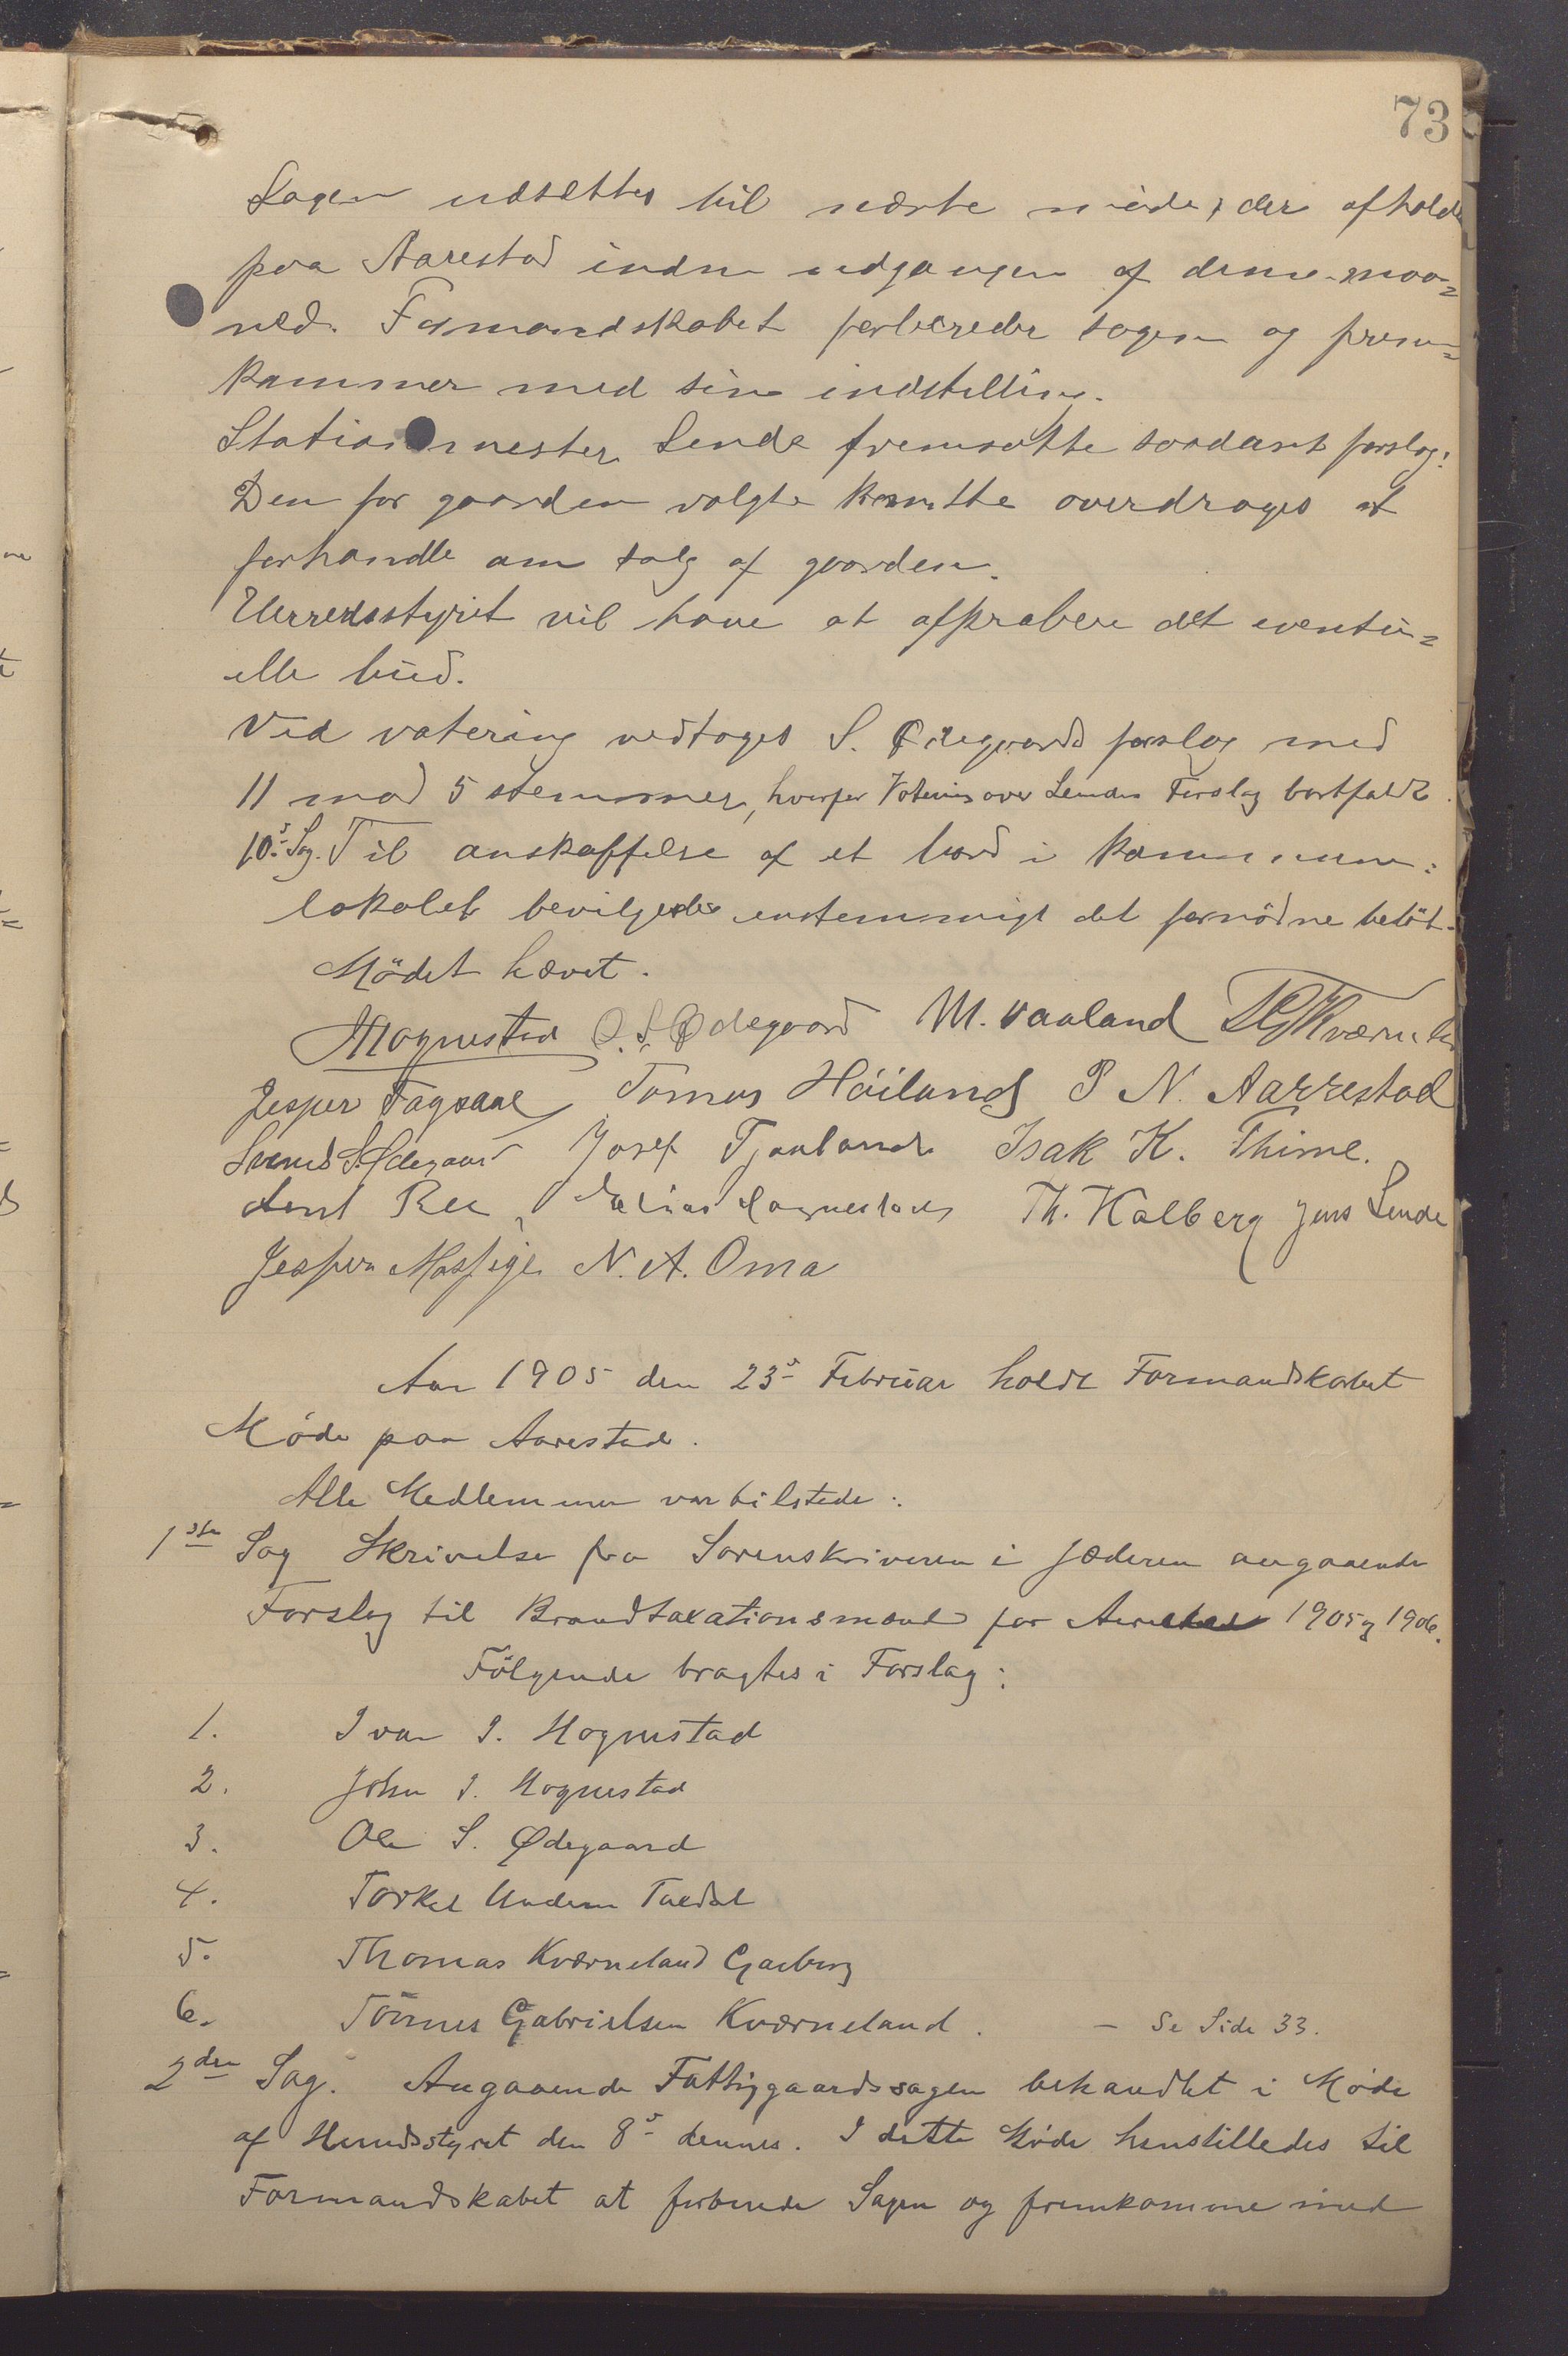 73
Sagen udsættes til næste møde, der afholdes
paa Aarestad inden udgangen af denne maa=
ned. Formandskabet forbereder sagen og frem=
kommer med sin indstilling.
Stationsmester Lende fremsatte saadant forslag:
Den for gaarden valgte komitte overdrages at
forhandle om salg af gaarden.
Herredsstyret vil have at approbere det eventu=
elle bud.
Ved votering vedtoges S. Ødegaards forslag med
11 mod 5 stemmer, hvorfor Votering over Lendes Forslag bortfaldt.
10de Sag. Til anskaffelse af et bord i kommune=
lokalet bevilgedes enstemmigt det fornødne beløb.
Mødet hævet.
Hognestad O. S. Ødegaard M. Vaaland T G Kværneland
Jesper Fagraae Tørres Høiland P N. Aarrestad
Svend S. Ødegaard Josef Tjaaland Isak K. Thime.
Aent Ree Elias Hognestad Th. Kalberg Jens Lende
Jesper Mossige N. A. Oma
Aar 1905 den 23de Februar holdt Formandskabet
Møde paa Aarestad.
Alle Medlemmer var tilstede.
1ste Sag Skrivelse fra Sorenskriveren i Jæderen angaaende
Forslag til Brandtaxationsmænd for Aarestad 1905 og 1906.
Følgende bragtes i Forslag:
1. Ivar I. Hognestad
2. John I. Hognestad
3. Ole S. Ødegaard
4. Torkel Undem
5. Thomas Kværneland Garborg
6. Tønnes Gabrielsen Kværneland. – Se Side 33.
2den Sag. Angaaende Fattiggaardssagen behandlet i Møde
af Herredsstyret den 8de dennes. I dette Møde henstilledes til
Formandskabet at forberede Sagen og fremkomme med